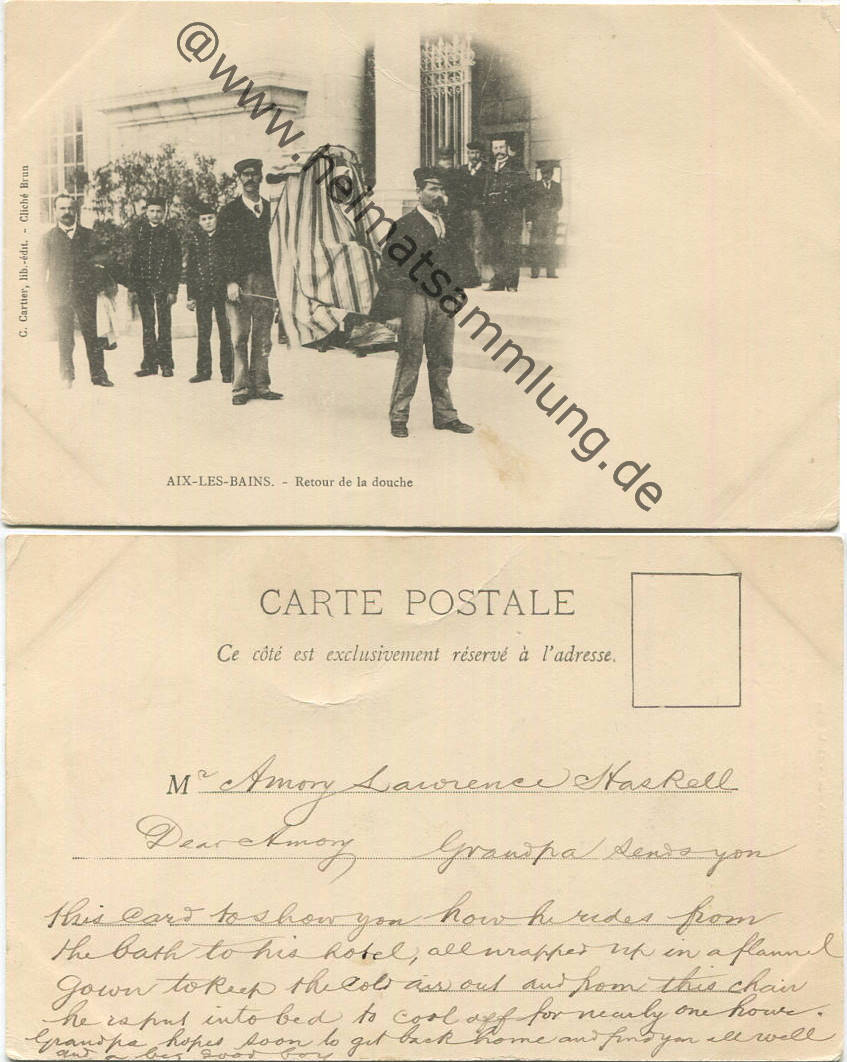 C. Cartier, lib.-édit. - Cliché Brun
@www.heimatsammlung.de
AIX-LES-BAINS. - Retour de la douche
CARTE POSTALE
Ce côté est exclusivement réservé à l'adresse.
Mr Amory Lawrence Haskell
Dear Amory Grandpa sends you
this card to show you how he rides from
the bath to his hotel, all wrapped up in a flannel
gown to keep the cold air out and from this chair
he is put into bed to cool off for nearly one hour.
Grandpa hopes soon to get back home and find you all well
and a big good boy